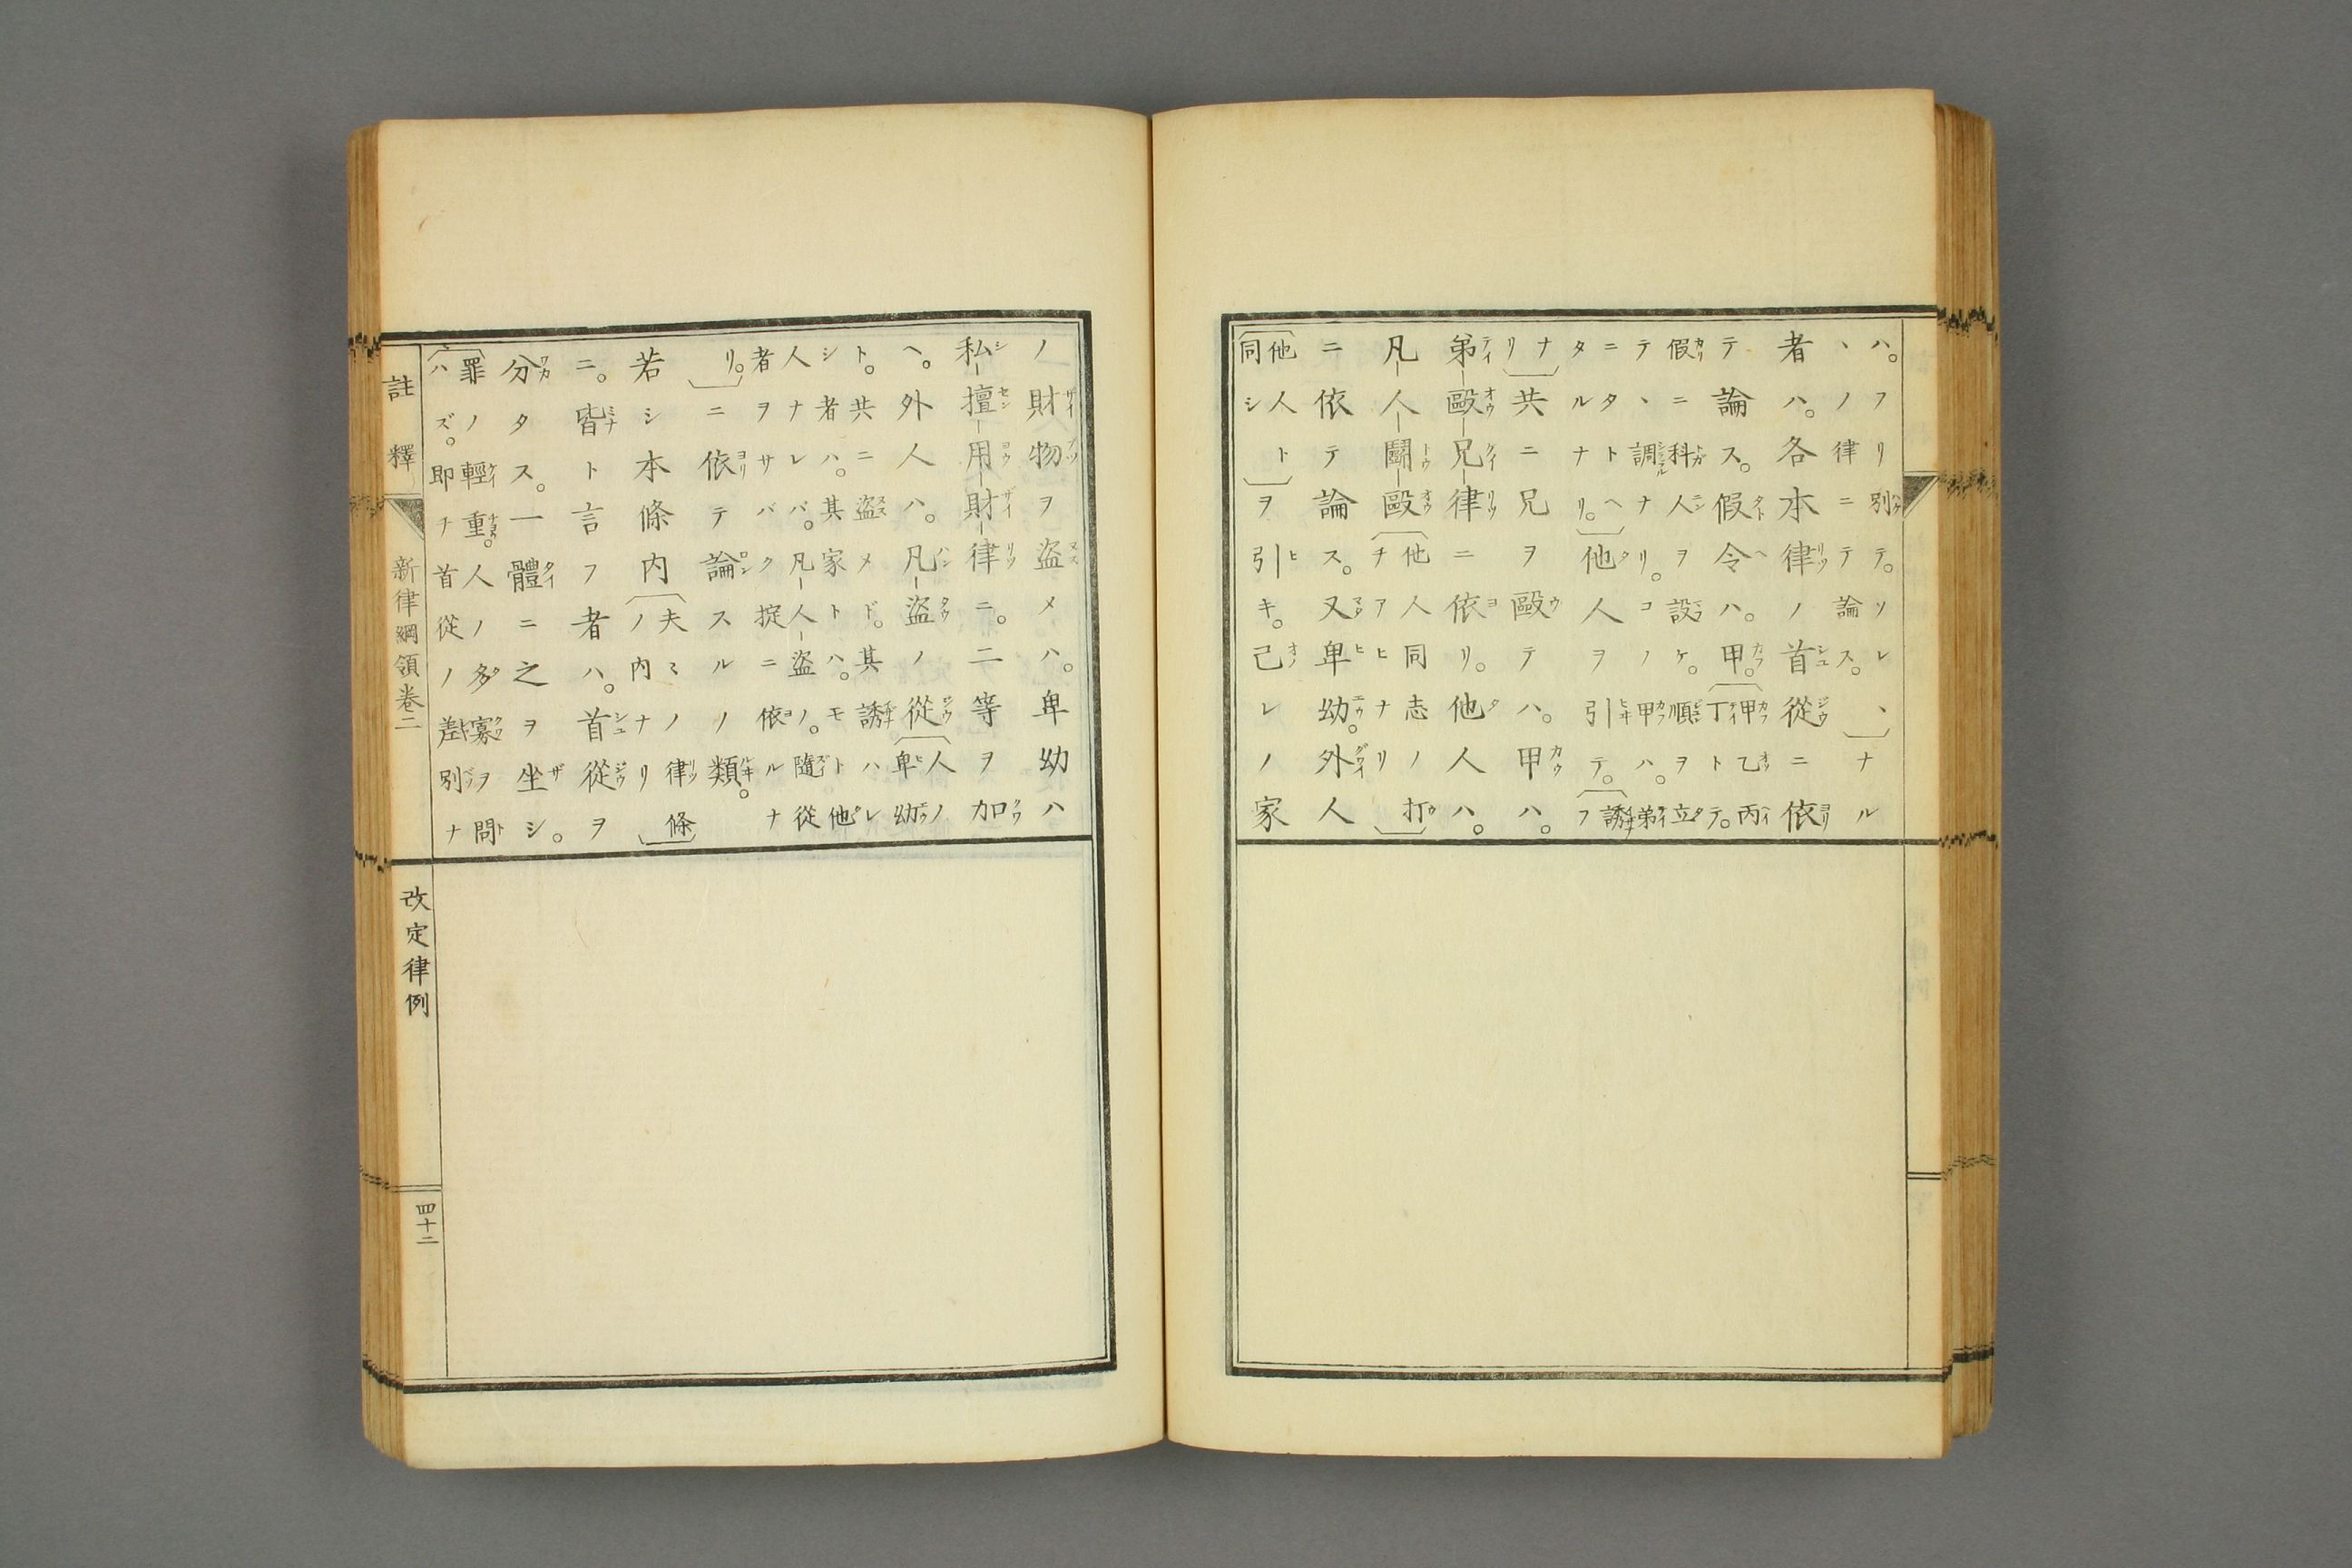 ハ。フリ別テ。リレ、
、ノ律ニテ論ス。
ナル
者ハ。各本律ノ首從ニ依
テ論ス。假令ハ。甲。甲乙丙
丁トテ。
假ニ科人ヲ設ケ。順ヲ立
テ、調ナリ。コノ甲ハ。弟
ニタトヘ
タルナリ。他人ヲ引テ。誘フ
ナリ共ニ兄ヲ毆テハ。甲ハ。
弟毆兄律ニ依リ。他人ハ。
凡人鬪毆他人同志ノ打
チアヒナリ
ニ依テ論ス。又卑幼。外人
他人ト
同シヲ引キ。己レノ家
ノ財物ヲ盜メハ。卑幼ハ
私擅用財律ニ。二等ヲ加
ヘ。外人ハ。凡盜ノ從人ノ
卑幼
ト。共ニ盜メド。其誘ハレ
シ者ハ。其家トハ。モト他
人ナレバ。凡人盜ノ。隨從
者ヲサバク掟ニ依ルナ
リ。ニ依テ論スルノ類。
若シ本條内夫ミノ律條
ノ内ナリ
ニ。皆ト言フ者ハ。首從ヲ
分タス。一體ニ之ヲ坐シ。
罪ノ輕重。人ノ多寡ヲ問
ハズ。即チ首從ノ差別ナ
註釋
新律綱領卷二
改定律例
四十二